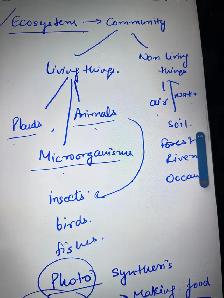 Ecosystem → Community
Living things.
Non living
things
Plants.
Animals
air
water
Microorganisms
soil.
forest
River
Ocean
insects.
birds.
fishes.
Photo synthesis
→ Making food